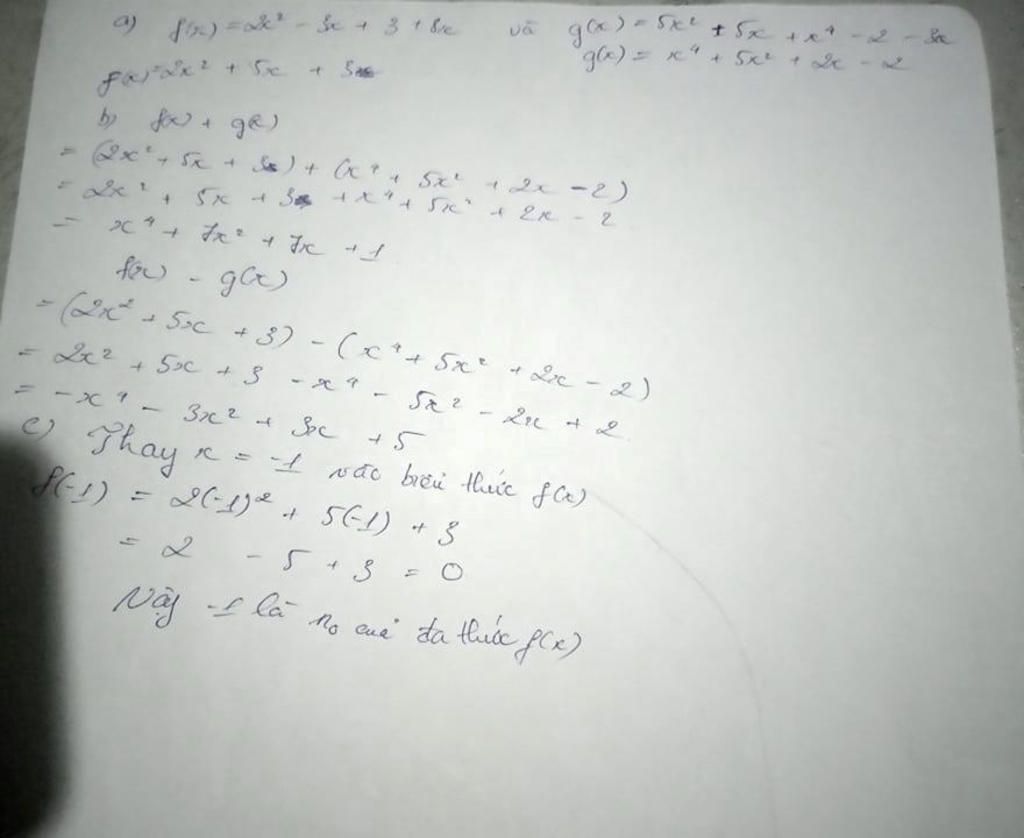 a) f(x) = 2x² - 3x + 3 + 8x và g(x) = 5x² + 5x + x⁴ - 2 - 3x
f(x) = 2x² + 5x + 3 g(x) = x⁴ + 5x² + 2x - 2
b) f(x) + g(x)
= (2x² + 5x + 3) + (x⁴ + 5x² + 2x - 2)
= 2x² + 5x + 3 + x⁴ + 5x² + 2x - 2
= x⁴ + 7x² + 7x + 1
f(x) - g(x)
= (2x² + 5x + 3) - (x⁴ + 5x² + 2x - 2)
= 2x² + 5x + 3 - x⁴ - 5x² - 2x + 2
= -x⁴ - 3x² + 3x + 5
c) Thay x = -1 vào biểu thức f(x)
f(-1) = 2(-1)² + 5(-1) + 3
= 2 - 5 + 3 = 0
Vậy -1 là no của đa thức f(x)